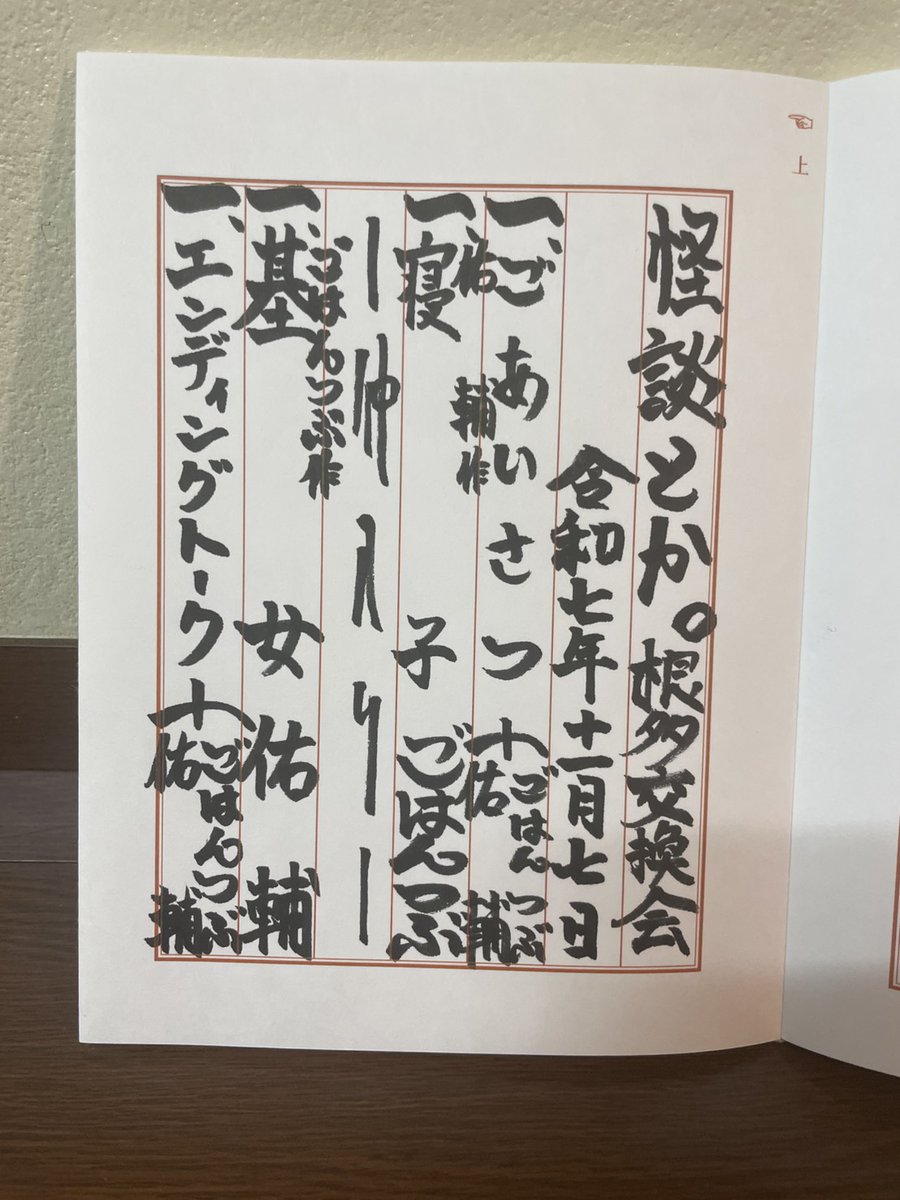 上
怪談とか。根多交換会
令和七年十一月七日
一、ごあいさつ
ごはんつぶ
佑輔
佑輔作
一、寝子 ごはんつぶ
ー仲入りー
ごはんつぶ作
一、基女 佑輔
一、エンディングトーク
ごはんつぶ
佑輔